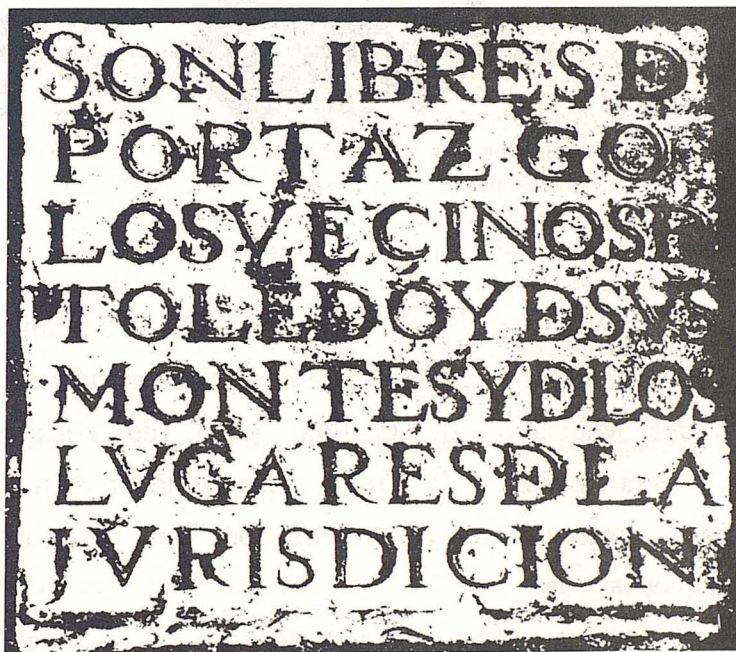 SONLIBRES D
PORTAZGO
LOSVECINOSD
TOLEDOYDSVS
MONTESYDLOS
LVGARESDLA
JVRISDICION